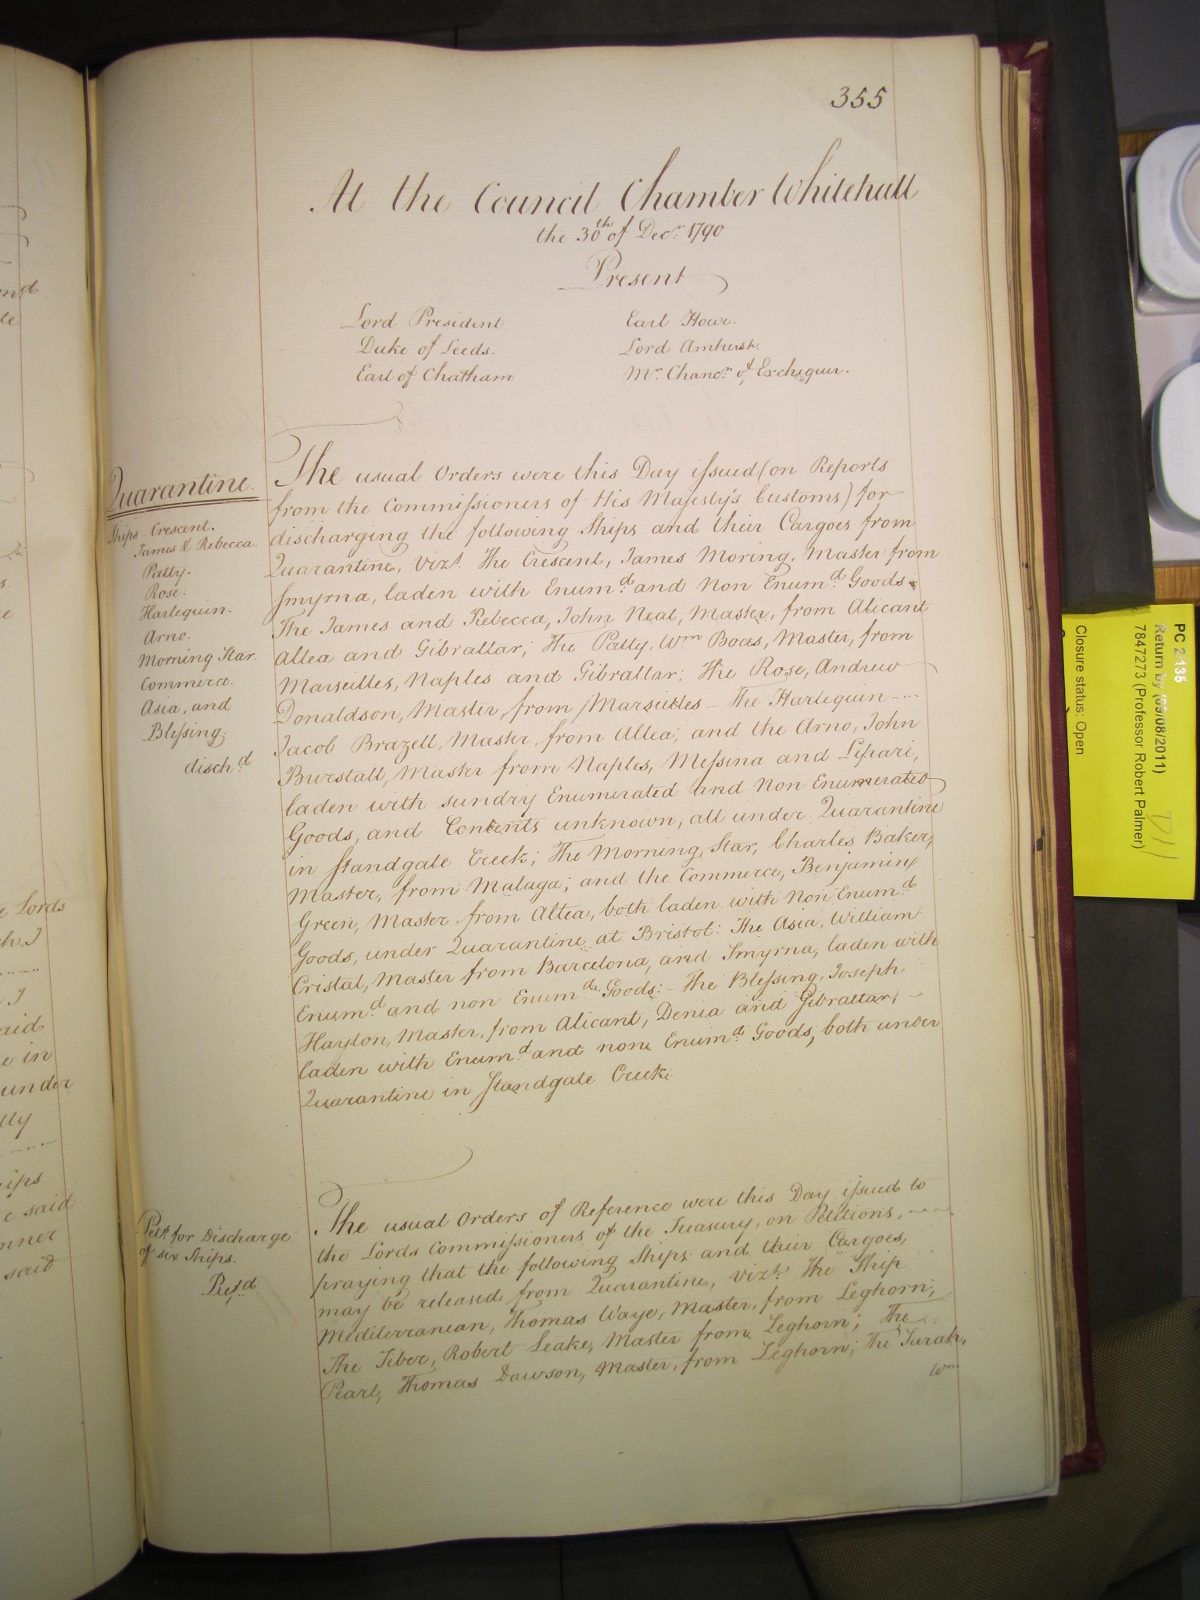 355
At the Council Chamber Whitehall
the 30th of Decr. 1790
Present
Lord President.
Duke of Leeds.
Earl of Chatham
Earl Howe.
Lord Amherst.
Mr. Chancr. of Exchequer.
Quarantine.
Ships Crescent.
James & Rebecca.
Patty.
Rose.
Harlequin.
Arno.
Morning Star.
Commerce.
Asia, and
Blessing.
dischd.
The usual Orders were this Day issued (on Reports
from the Commissioners of His Majesty's Customs) for
discharging the following Ships and their Cargoes from
Quarantine, vizt. The Crescent, James Moring, Master from
Smyrna, laden with Enumd. and Non Enumd. Goods.
The James and Rebecca, John Neal, Master, from Alicant
Altea and Gibraltar; The Patty, Wm Boas, Master, from
Marseilles, Naples and Gibraltar; The Rose, Andrew
Donaldson, Master, from Marseilles - The Harlequin
Jacob Brazell, Master, from Altea; and the Arno, John
Burstall, Master from Naples, Messina and Lipari,
laden with sundry Enumerated and Non Enumerated
Goods, and Contents unknown, all under Quarantine
in Standgate Creek; The Morning Star, Charles Baker,
Master, from Malaga; and the Commerce, Benjamin
Green, Master from Altea, both laden with Non Enumd.
Goods, under Quarantine at Bristol: The Asia, William
Cristal, Master from Barcelona, and Smyrna, laden with
Enumd. and non Enumd. Goods: - The Blessing, Joseph
Hayton, Master, from Alicant, Denia and Gibraltar, -
laden with Enumd. and non Enumd. Goods, both under
Quarantine in Standgate Creek.
Pets. for Discharge
of six Ships.
Refd.
The usual Orders of Reference were this Day issued to
the Lords Commissioners of the Treasury, on Petitions,
praying that the following Ships and their Cargoes,
may be released from Quarantine, vizt. The Ship
Mediterranean, Thomas Waye, Master, from Leghorn;
The Tiber, Robert Leake, Master from Leghorn; The
Pearl, Thomas Dawson, Master, from Leghorn; The Sarah,
Wm
PC 2 135
Return by (09/08/2011)
7847273 (Professor Robert Palmer)
Closure status: Open
D11